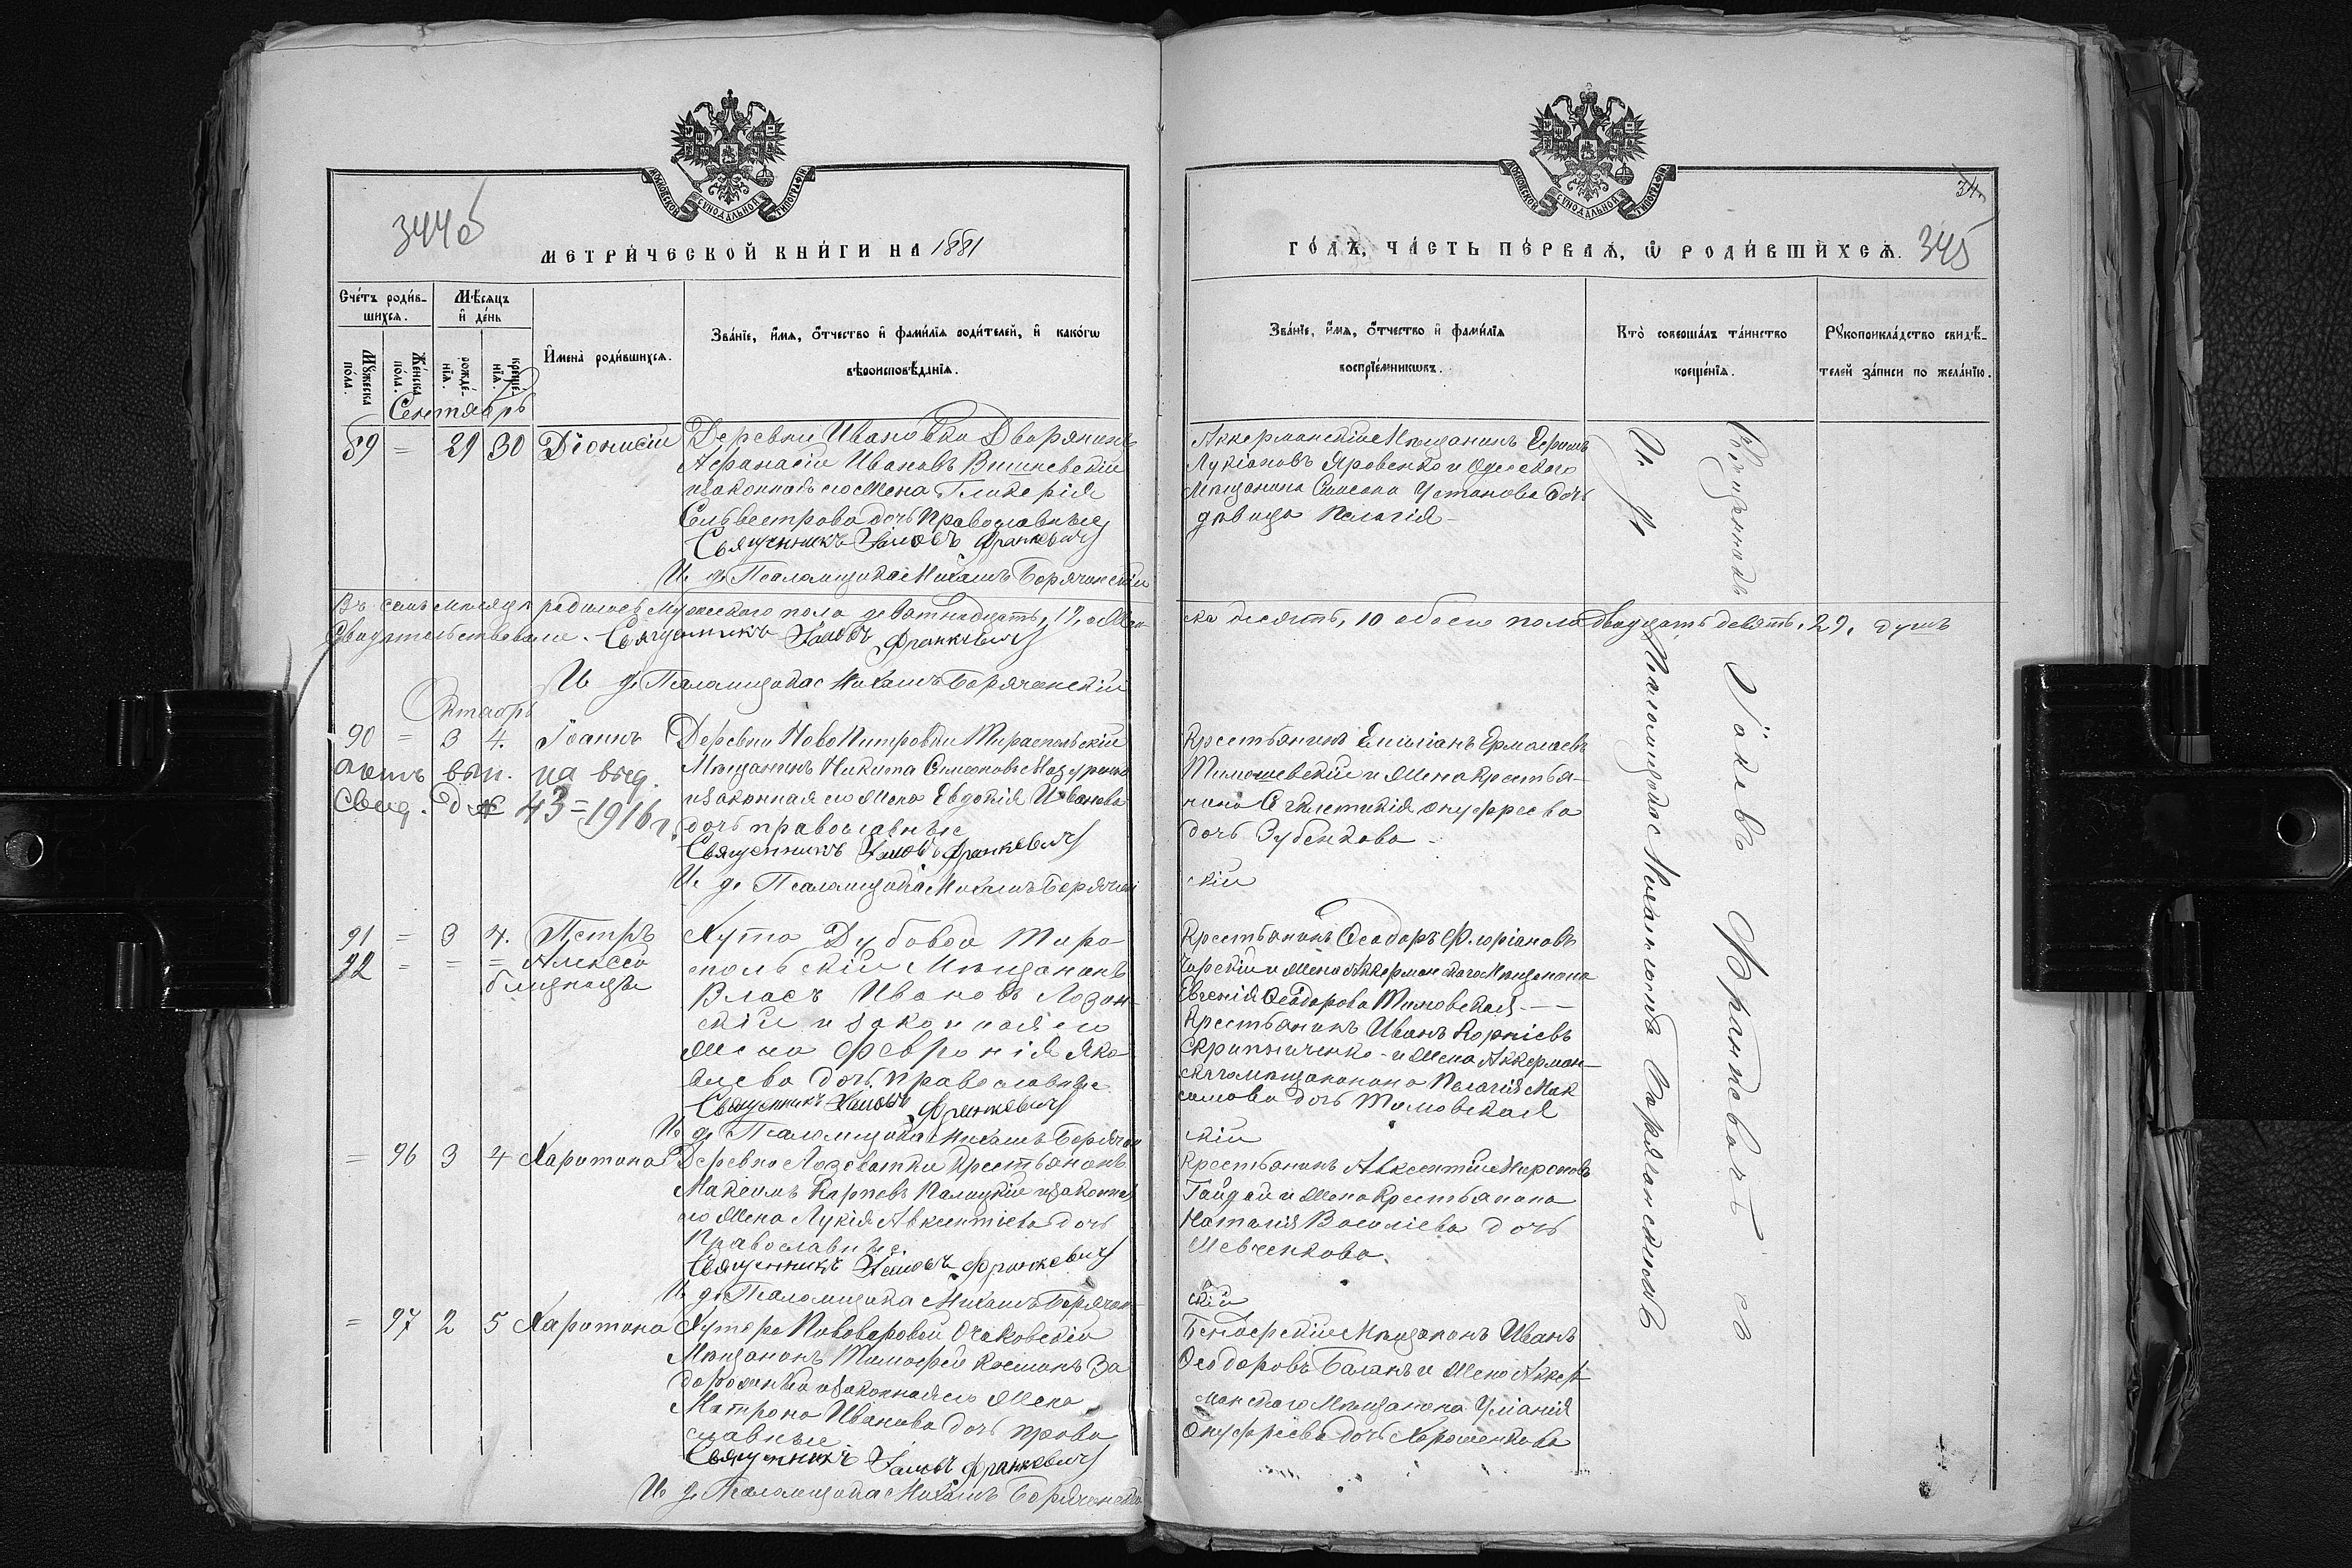 344 об
МОСКОВСКОЙ СУНОДАЛЬНОЙ ТИПОГРАФІИ
МЕТРИЧЕСКОЙ КНИГИ НА 1881
Счетъ родив-
шихся.
Мѣсяцъ
и день
Имена родившихся.
Званіе, имя, отчество и фамилія родителей, и какогω
вѣроисповѣданія.
Мужеска пола.
Женска пола.
рожде-нія.
креще-нія.
Сентябрь
89 = 29 30 Діонисій
Деревни Ивановки Дворянинъ
Афанасій Ивановъ Вишневскій
и законная его жена Гликерія
Сильвестрова дочь православные
Священникъ Іаковъ Франкевичъ
И. д. Псаломщика Михаилъ Борячинскій
Въ семъ мѣсяцѣ родилось мужескаго пола девятнадцать, 19, а жен-
Свидѣтельствовали. Священникъ Іаковъ Франкевичъ
И. д. Псаломщика Михаилъ Борячинскій
Октябрь
90 = 3 4. Іоаннъ
вып. на выд.
свид. № 43=1916 г.
Деревни Новопетровки Тираспольскій
Мѣщанинъ Никита Симеоновъ Мазуренко
и законная его жена Евдокія Иванова
дочь православные
Священникъ Іаковъ Франкевичъ
И. д. Псаломщика Михаилъ Борячин
91 = 3 4. Петръ
92 = = = Алексей
близнецы
Хута Дубовой Тира-
польскій Мѣщанинъ
Власъ Ивановъ Лозин-
скій и законная его
жена Февронія Яко-
влева дочь. православные
Священникъ Іаковъ Франкевичъ
И. д. Псаломщика Михаилъ Борячин
= 96 3 4 Харитина
Деревни Лозоватки Крестьянинъ
Максимъ Карповъ Палицкій и законная
его жена Лукія Авксентіева дочь
Православные
Священникъ Іаковъ Франкевичъ
И. д. Псаломщика Михаилъ Борячин-
= 97 2 5 Харитина
Хутора Пивоваровой Очаковскій
Мѣщанинъ Тимофей Косминъ За
дорожный и законная его жена
Матрона Иванова дочь право
славные
Священникъ Іаковъ Франкевичъ
И. д. Псаломщика Михаилъ Борячинскій
МОСКОВСКОЙ СУНОДАЛЬНОЙ ТИПОГРАФІИ
ГОДЪ, ЧАСТЬ ПЕРВАЯ, Ѡ РОДИВШИХСЯ.
345
Званіе, имя, отчество и фамилія
воспріемникωвъ.
Кто совершалъ таинство
крещенія.
Рукоприкладство свидѣ-
телей записи по желанію.
Аккерманскій Мѣщанинъ Ефимъ
Лукіановъ Яровенко и Одескаго
Мѣщанина Симеона Устинова дочь
дѣвица Пелагія
ска десять, 10 обоего пола двадцать девять, 29, душъ
Крестьянинъ Емиліанъ Ермолаевъ
Тимошевскій и жена крестья-
нина Анфреева
дочь Зубенкова
скій
Крестьянинъ Феодоръ Флоріановъ
и жена Аккерманскаго Мѣщанина
Евгенія Феодорова Тимовская
Крестьянинъ Иванъ Корніевъ
Скрипниченко и жена Аккерман-
скаго мѣщанина Пелагія Мак
симова дочь Тимовская
скій
Крестьянинъ Авксентій Мироновъ
Гайдай и жена Крестьянина
Наталія Василіева дочь
Шевченкова.
скій
Бендерскій Мѣщанинъ Иванъ
Феодоровъ Баланъ и жена Аккер-
манскаго Мѣщанина Уліанія
Онуфріева дочь Харошенкова
Священникъ Іаковъ Франкевичъ съ
И. д. Псаломщика Михаиломъ Борячинскимъ